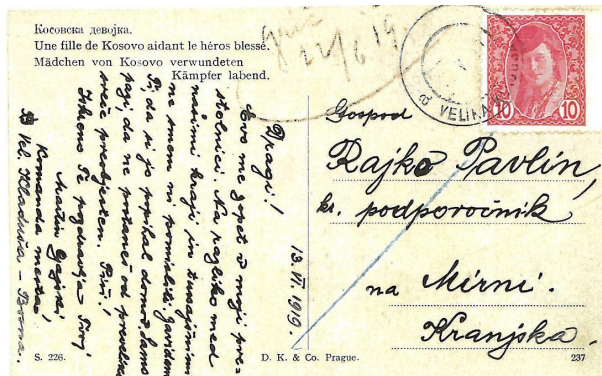 Косовска девојка.
Une fille de Kosovo aidant le héros blessé.
Mädchen von Kosovo verwundeten
Kämpfer labend.
22/6 19
VELIKA
10 10
Gospod
Rajko Pavlin,
kr. podporočnik
na Mirni.
Kranjska.
13. VI. 1919.
Dragi!
Evo me zopet v moji pre-
stolnici. Na razliko med
našimi kraji in tukajšnimi
ne smem ni pomisliti.
Ti, da si jo popihal domov. Samo
pazi, da ne postaneš od
sreče preobjesten. Piši!
Iskreno Te pozdravlja Tvoj
Komanda mesta
Vel. Kladuša – Bosna.
S. 226.
D. K. & Co. Prague.
237